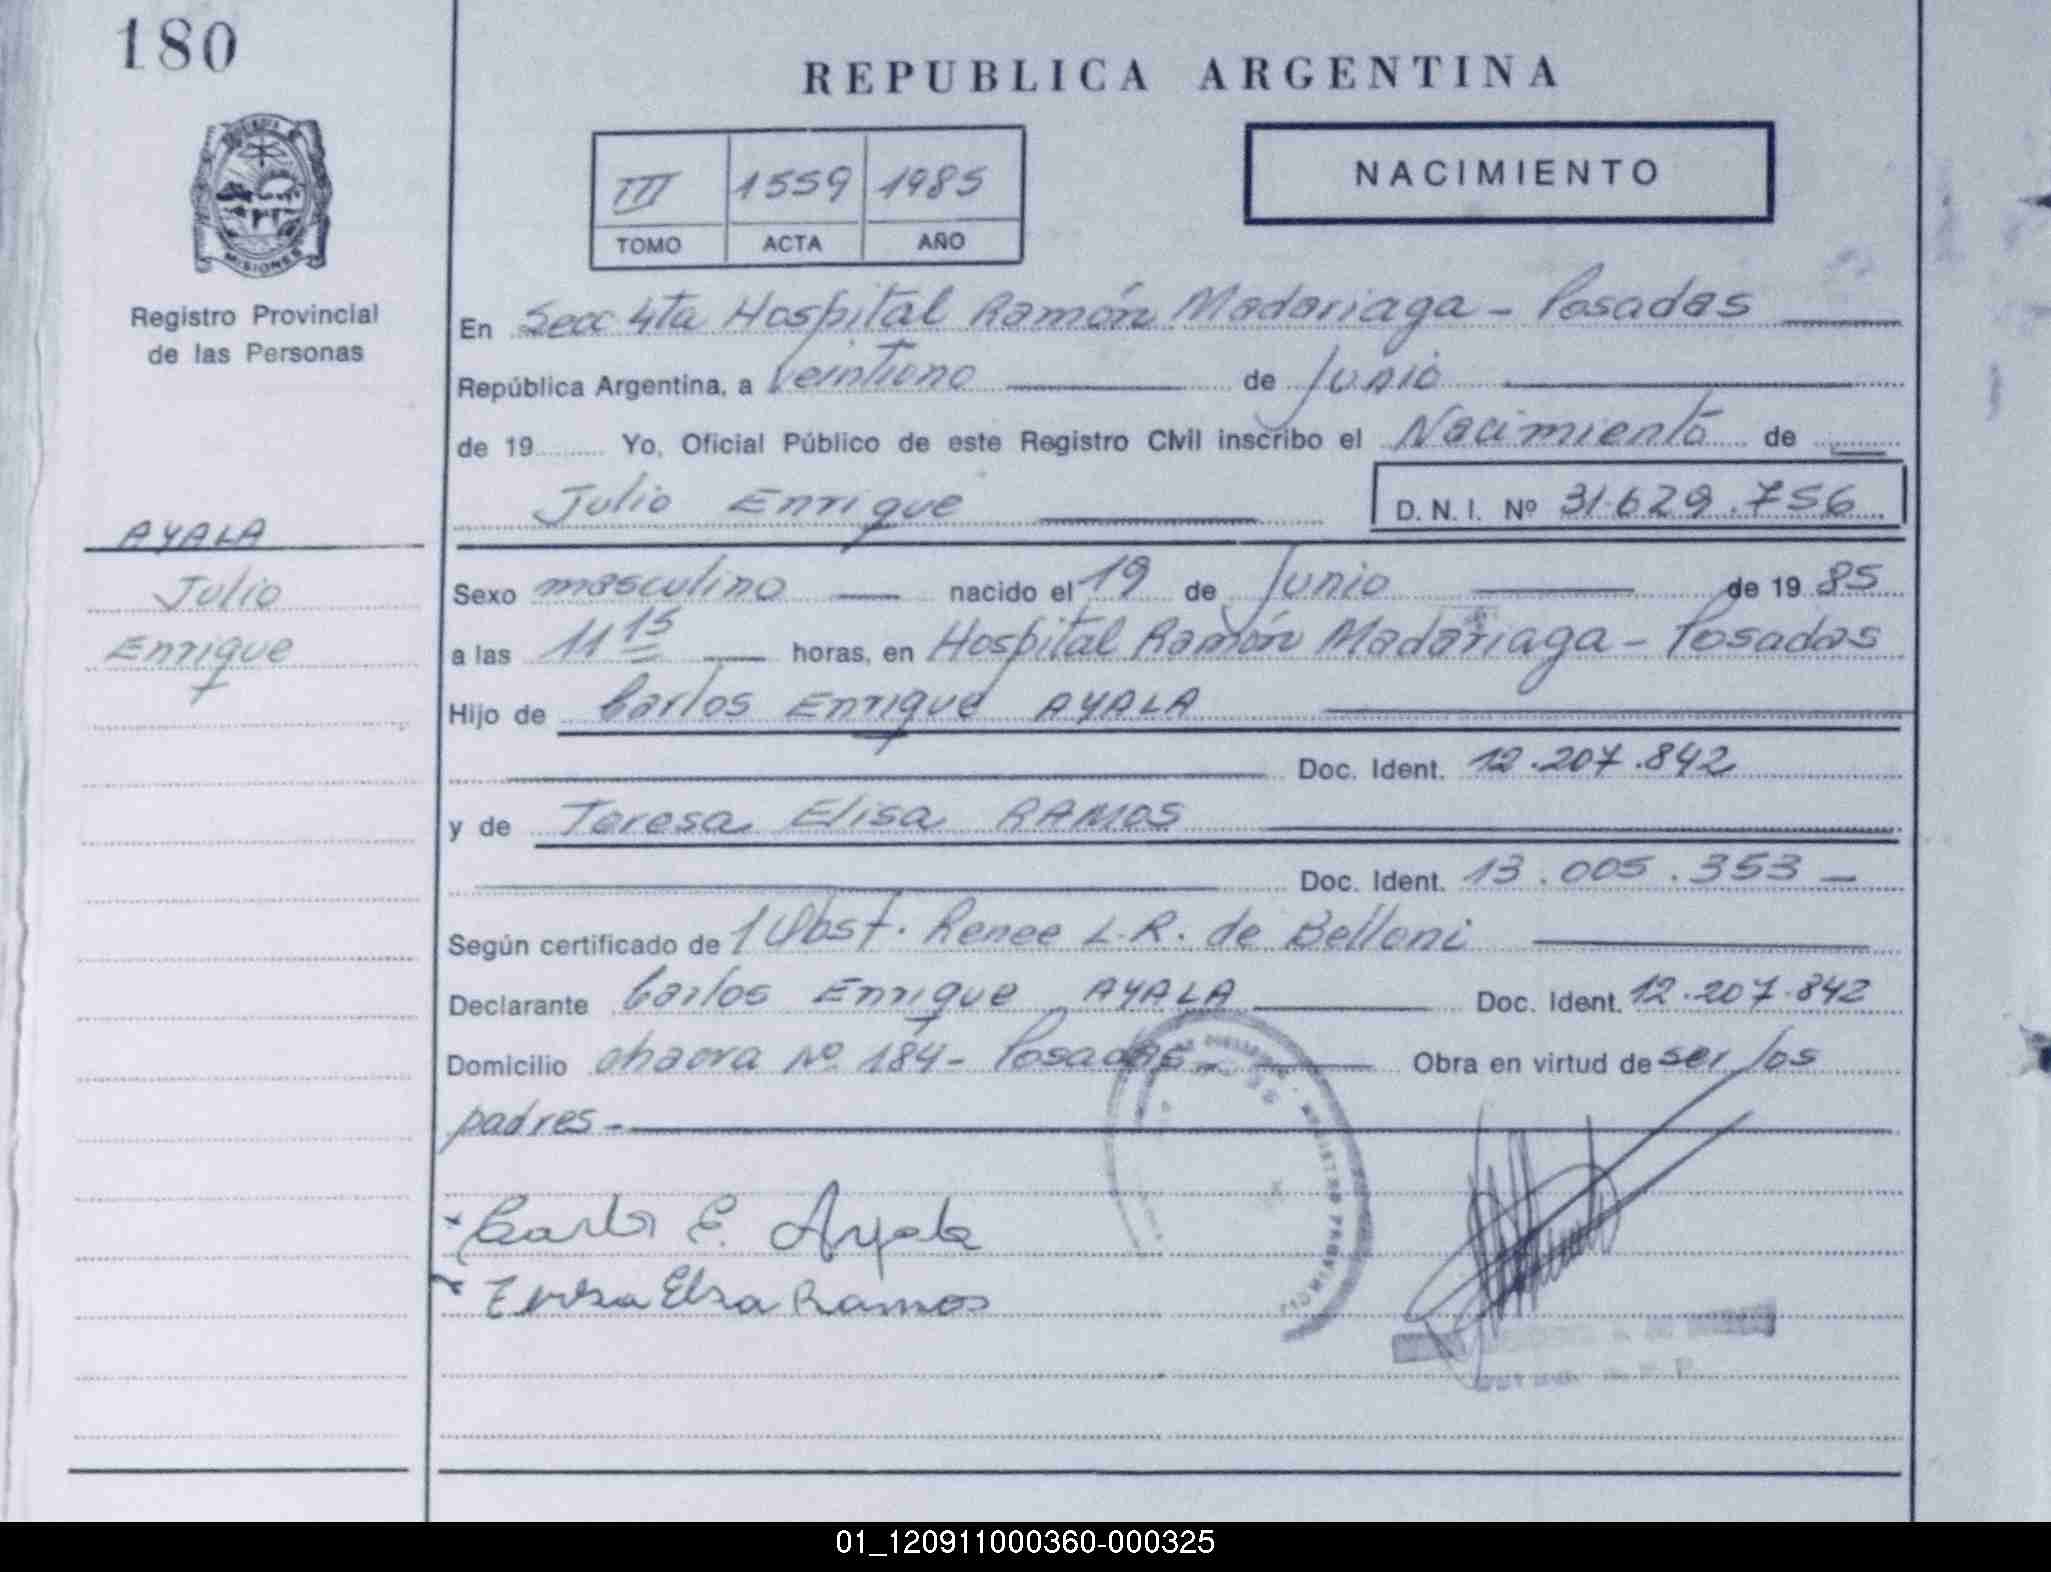 180
REPUBLICA ARGENTINA
III 1559 1985
TOMO ACTA AÑO
NACIMIENTO
MISIONES
Registro Provincial
de las Personas
En Secc 4ta Hospital Ramón Madariaga - Posadas
República Argentina, a Veintiuno de Junio
de 19 Yo, Oficial Público de este Registro Civil inscribo el Nacimiento de
Julio Enrique D. N. I. Nº 31.629.756
AYALA
Julio
Enrique
Sexo masculino nacido el 19 de Junio de 19 85
a las 11 15 horas, en Hospital Ramón Madariaga - Posadas
Hijo de Carlos Enrique AYALA
Doc. Ident. 12.207.842
y de Teresa Elisa RAMOS
Doc. Ident. 13.005.353 -
Según certificado de Obst. Renee L.R. de Belloni
Declarante Carlos Enrique AYALA Doc. Ident. 12.207.842
Domicilio chacra Nº 184 - Posadas - Obra en virtud de ser los
padres -
REGISTRO PROVINCIAL
Carlos E. Ayala
Teresa Elsa Ramos
01_120911000360-000325